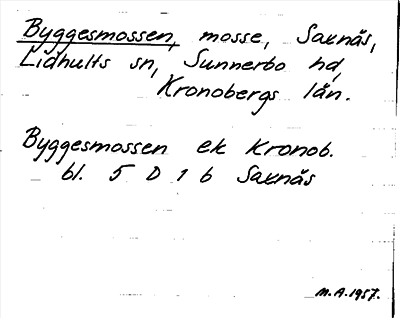 Byggesmossen, mosse, Saxnäs,
Lidhults sn, Sunnerbo hd,
Kronobergs län.
Byggesmossen ek Kronob.
bl. 5 D 1 b Saxnäs
M.A. 1957.